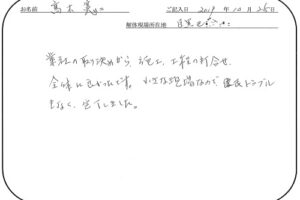 お名前 高木 ご記入日 2019年10月25日
解体現場所在地 目黒区
業社の取り決めから、施工、工程の打合せ、
全体に良かったです。小さな現場なので トラブル
もなく、完了しました。